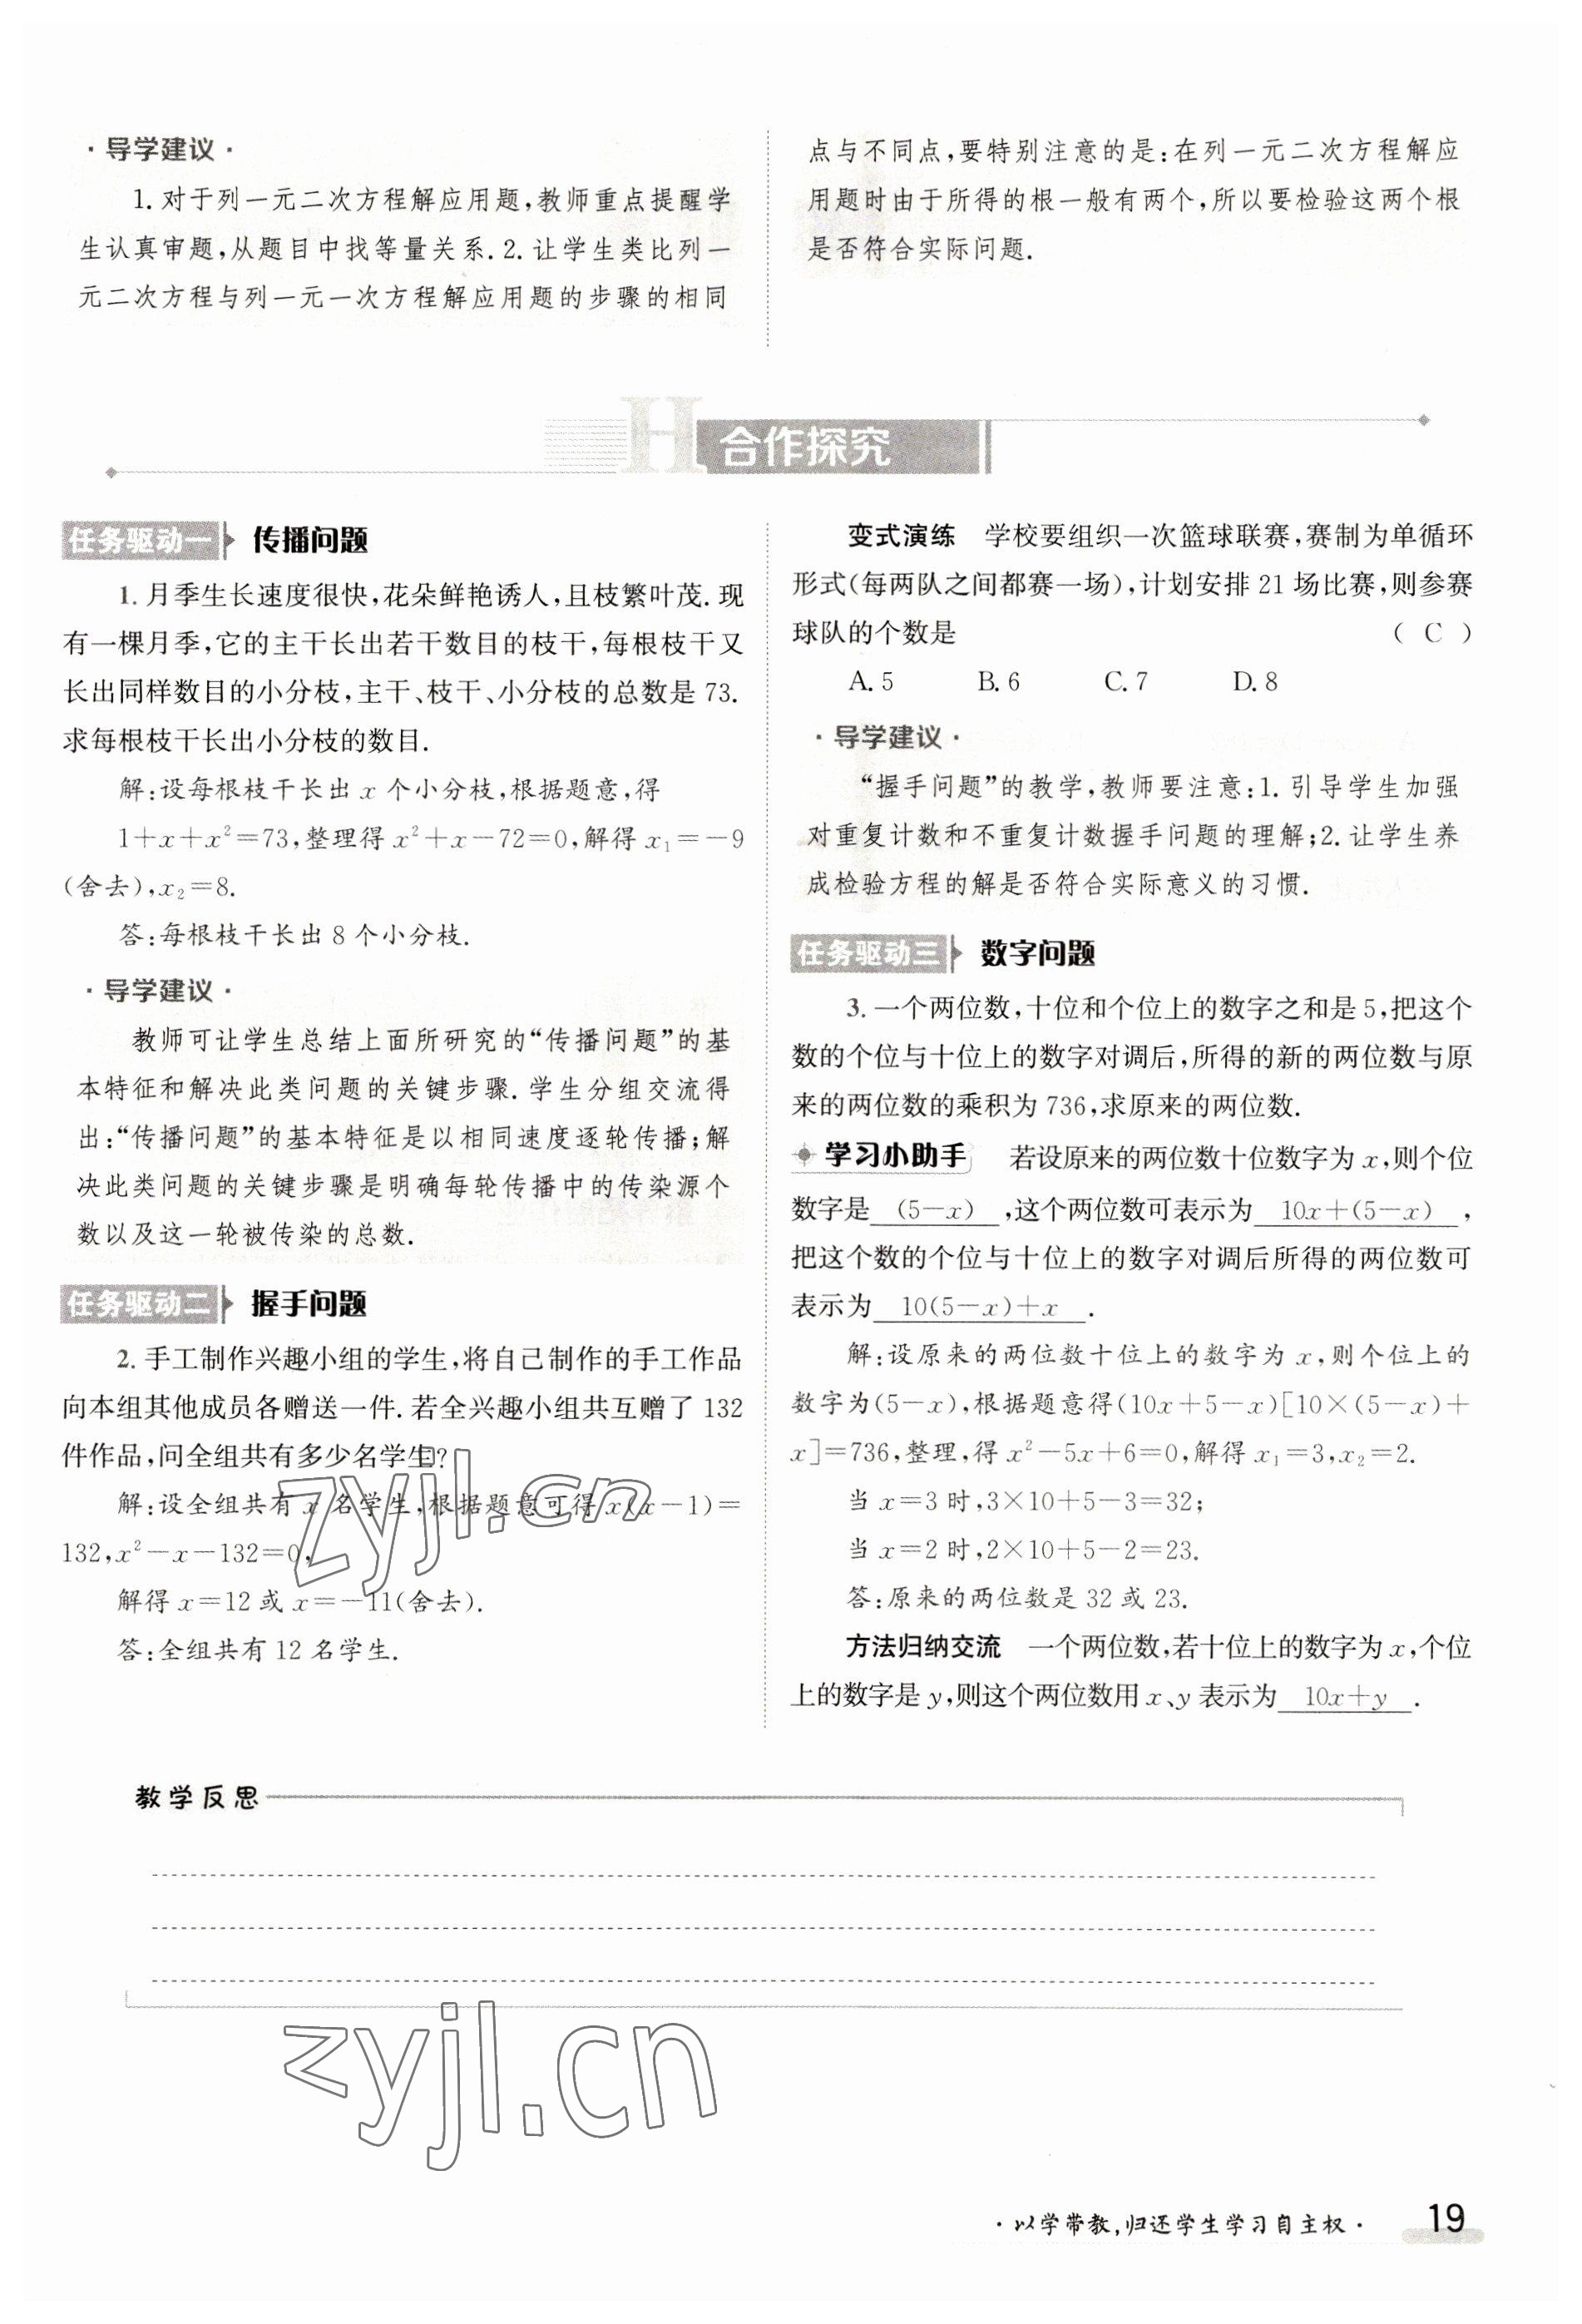 ·导学建议·
1. 对于列一元二次方程解应用题,教师重点提醒学
生认真审题,从题目中找等量关系. 2. 让学生类比列一
元二次方程与列一元一次方程解应用题的步骤的相同
点与不同点,要特别注意的是:在列一元二次方程解应
用题时由于所得的根一般有两个,所以要检验这两个根
是否符合实际问题.
H 合作探究
任务驱动一 传播问题
1. 月季生长速度很快,花朵鲜艳诱人,且枝繁叶茂. 现
有一棵月季,它的主干长出若干数目的枝干,每根枝干又
长出同样数目的小分枝,主干、枝干、小分枝的总数是 73.
求每根枝干长出小分枝的数目.
解:设每根枝干长出 x 个小分枝,根据题意,得
1+x+x²=73,整理得 x²+x-72=0,解得 x₁=-9
(舍去),x₂=8.
答:每根枝干长出 8 个小分枝.
·导学建议·
教师可让学生总结上面所研究的“传播问题”的基
本特征和解决此类问题的关键步骤. 学生分组交流得
出:“传播问题”的基本特征是以相同速度逐轮传播;解
决此类问题的关键步骤是明确每轮传播中的传染源个
数以及这一轮被传染的总数.
任务驱动二 握手问题
2. 手工制作兴趣小组的学生,将自己制作的手工作品
向本组其他成员各赠送一件. 若全兴趣小组共互赠了 132
件作品,问全组共有多少名学生?
解:设全组共有 x 名学生,根据题意可得 x(x-1)=
132,x²-x-132=0,
解得 x=12 或 x=-11(舍去).
答:全组共有 12 名学生.
变式演练 学校要组织一次篮球联赛,赛制为单循环
形式(每两队之间都赛一场),计划安排 21 场比赛,则参赛
球队的个数是 ( C )
A. 5 B. 6 C. 7 D. 8
·导学建议·
“握手问题”的教学,教师要注意:1. 引导学生加强
对重复计数和不重复计数握手问题的理解;2. 让学生养
成检验方程的解是否符合实际意义的习惯.
任务驱动三 数字问题
3. 一个两位数,十位和个位上的数字之和是 5,把这个
数的个位与十位上的数字对调后,所得的新的两位数与原
来的两位数的乘积为 736,求原来的两位数.
学习小助手 若设原来的两位数十位数字为 x,则个位
数字是 (5-x) ,这个两位数可表示为 10x+(5-x) ,
把这个数的个位与十位上的数字对调后所得的两位数可
表示为 10(5-x)+x .
解:设原来的两位数十位上的数字为 x,则个位上的
数字为(5-x),根据题意得(10x+5-x)[10×(5-x)+
x]=736,整理,得 x²-5x+6=0,解得 x₁=3,x₂=2.
当 x=3 时,3×10+5-3=32;
当 x=2 时,2×10+5-2=23.
答:原来的两位数是 32 或 23.
方法归纳交流 一个两位数,若十位上的数字为 x,个位
上的数字是 y,则这个两位数用 x、y 表示为 10x+y .
教学反思
zyjl.cn
zyjl.cn
·以学带教,归还学生学习自主权· 19